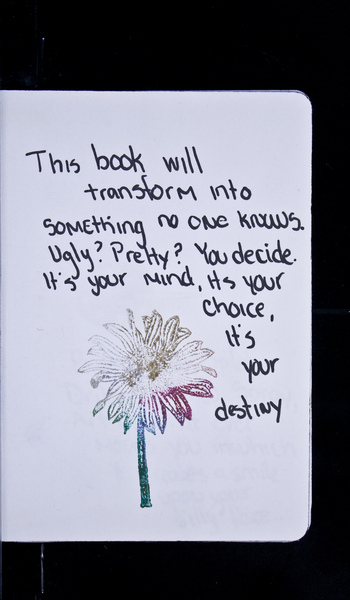 This book will
transform into
something no one knows.
Ugly? Pretty? You decide.
It's your mind, Its your
choice,
It's
your
destiny